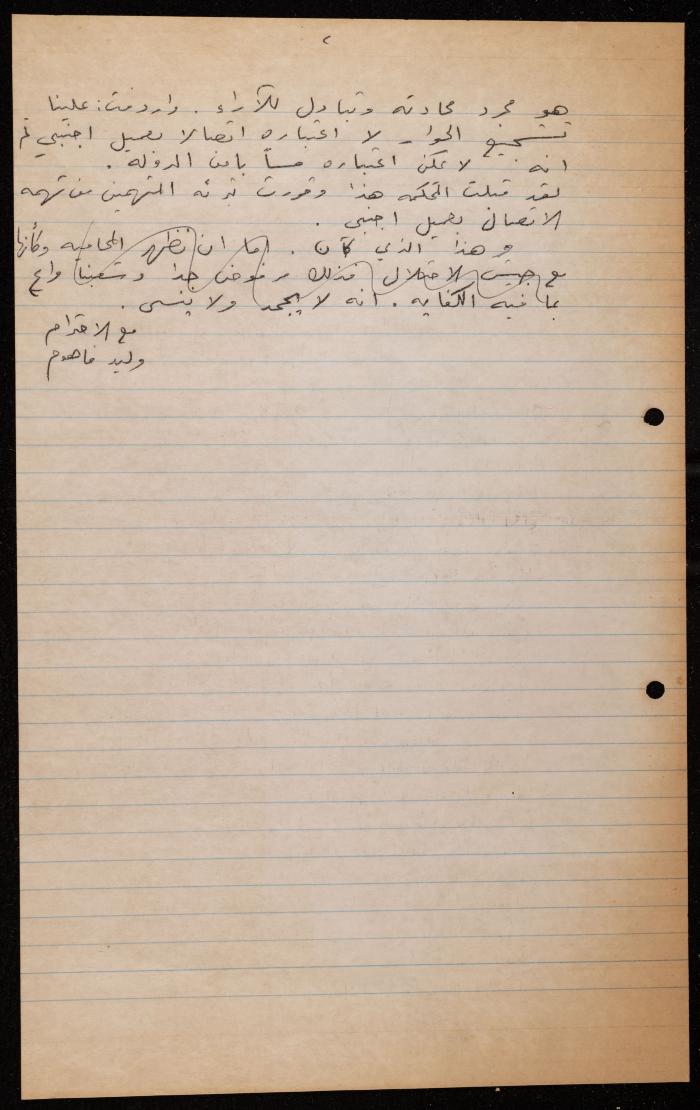 ٢
هو مجرد محادثه وتبادل للآراء . واردفت: علينا
تشجيع الحوار لا اعتباره اتصالا بعميل اجنبي ثم
انه لا يمكن اعتباره مساً بامن الدوله .
لقد قبلت المحكمه هذا وقررت تبرئه المتهمين من تهمه
الاتصال بعميل اجنبي .
وهذا الذي كان . اما ان تظهر المحاميه وكأنها
مع جيش الاحتلال فذلك مرفوض جدا وشعبنا واع
بما فيه الكفايه . انه لا يجحد ولا ينسى .
مع الاحترام
وليد فاهوم